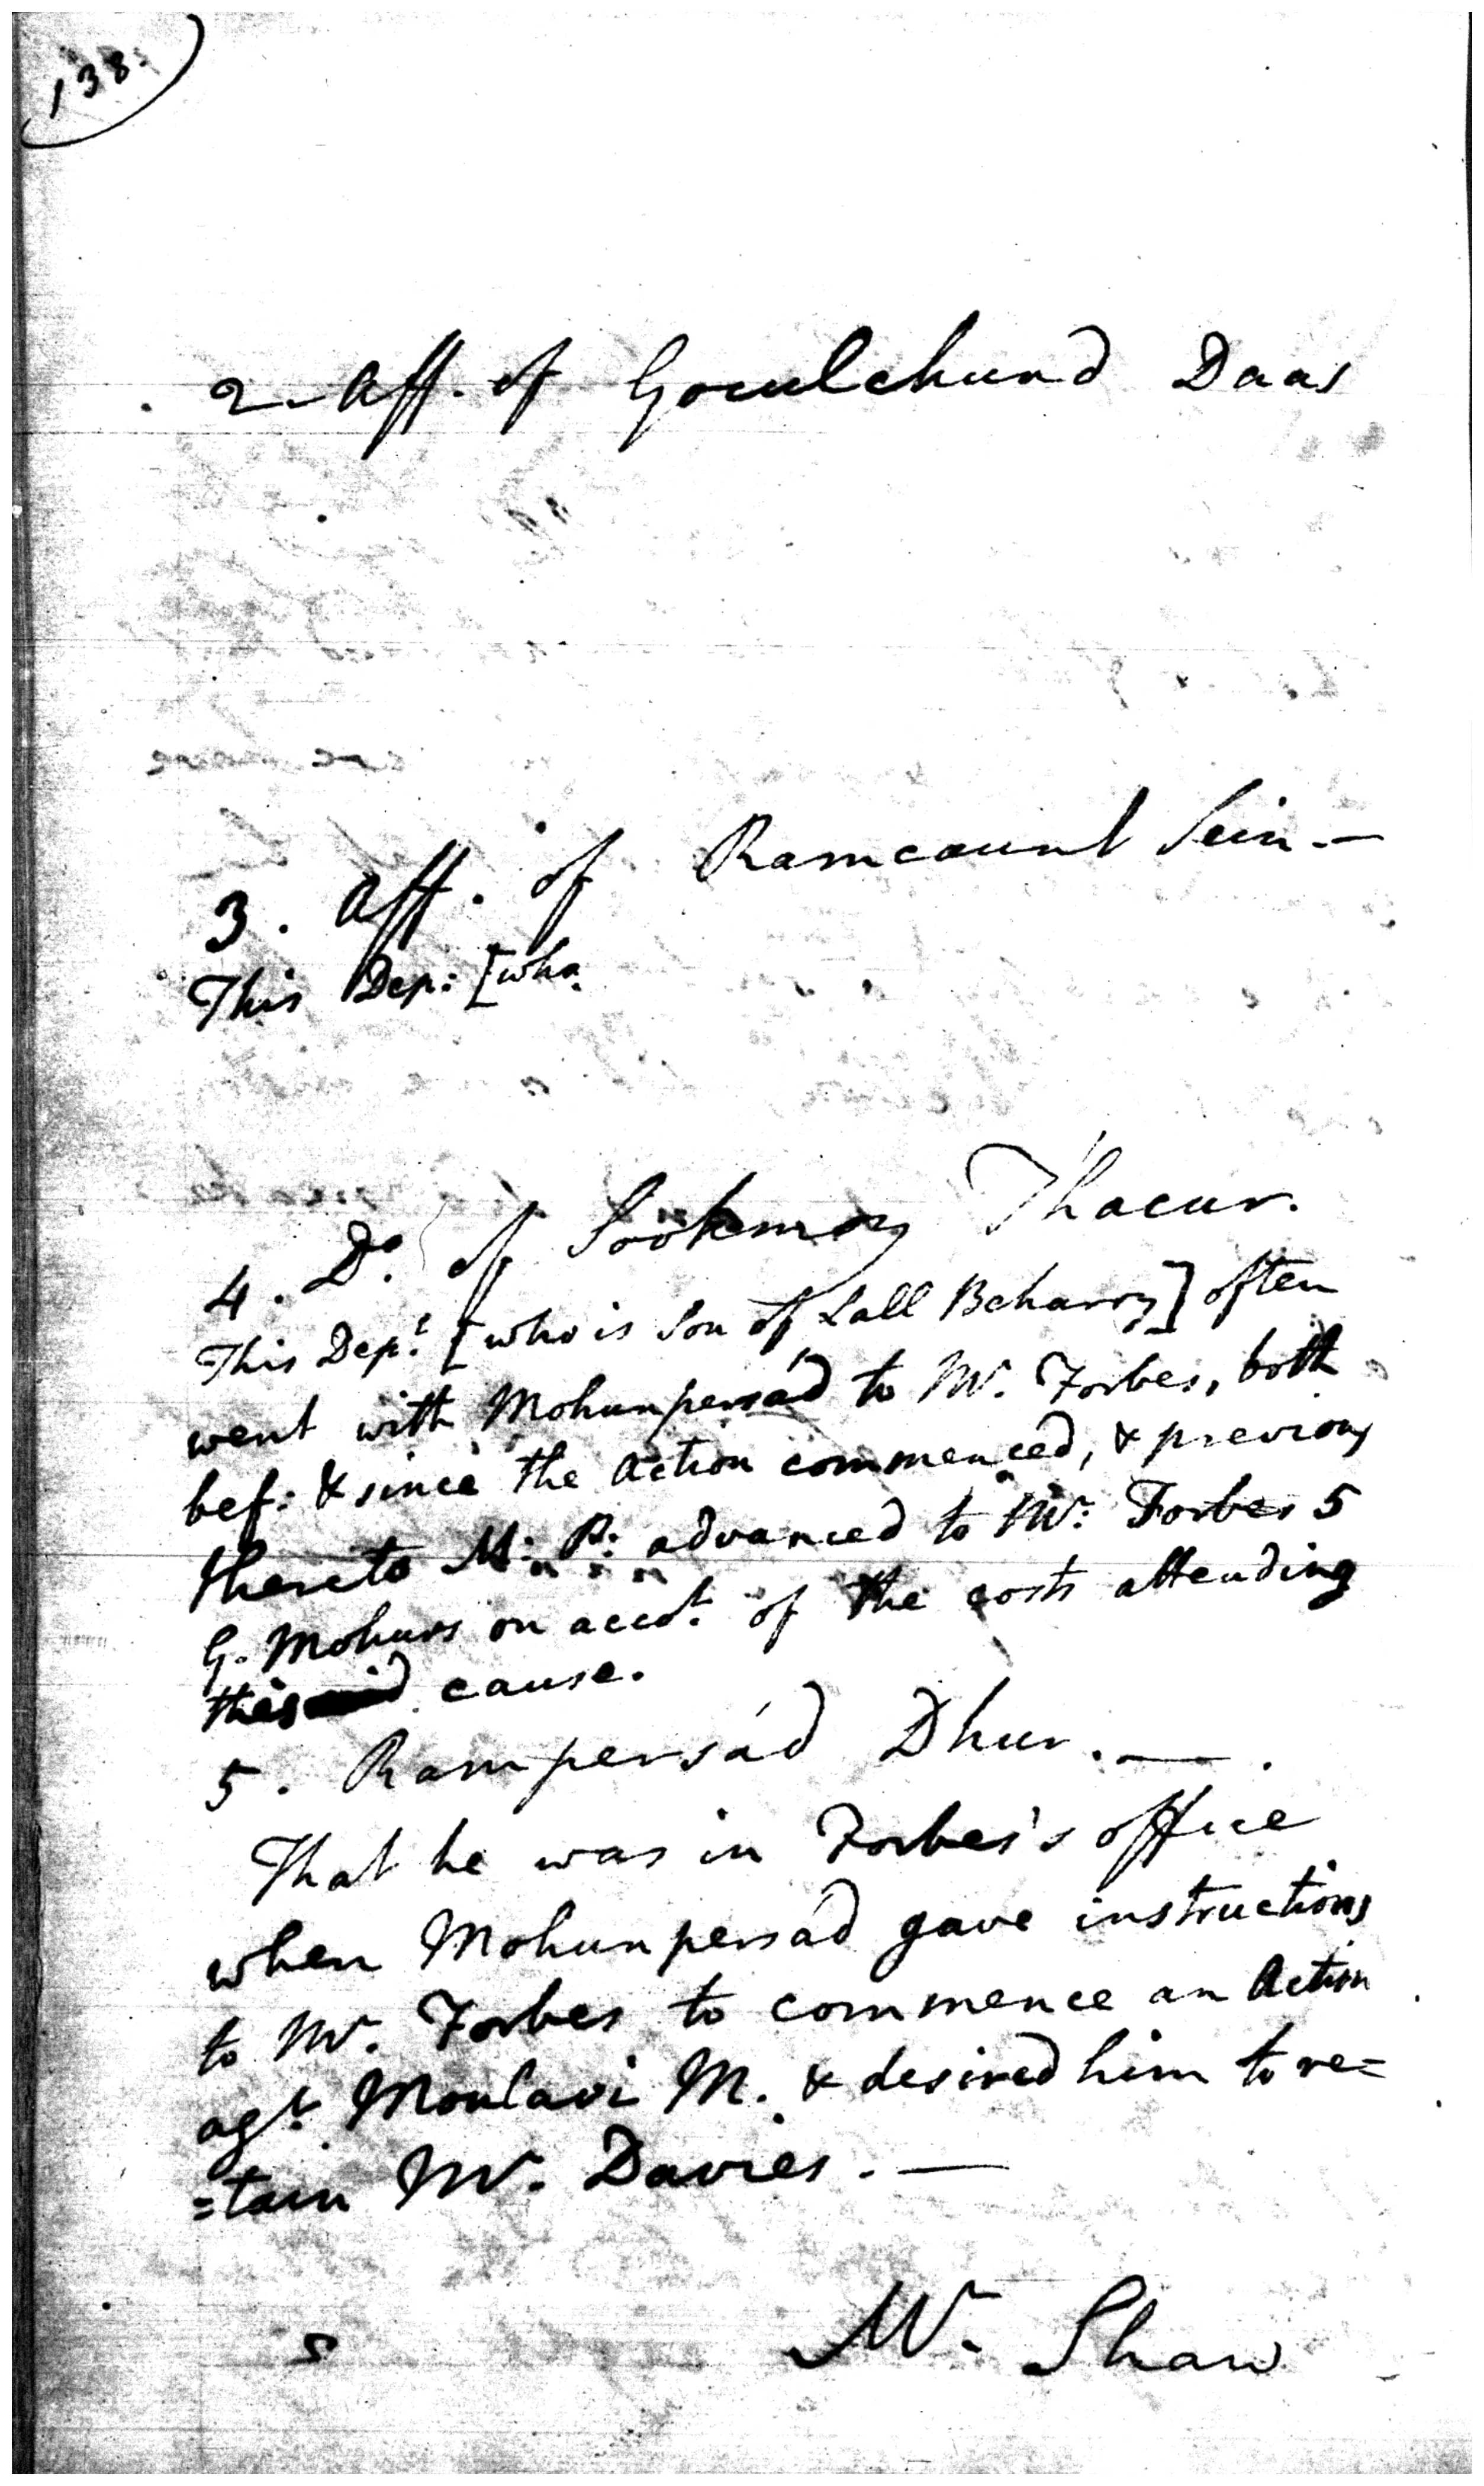 138.
2. Aff. of Goculchund Daas
3. Aff. of Ramcaunt Sein.—
This Dep: [who
4. Do. of Sookmoy Thacur.
This Dept. [who is Son of Lall Beharry] often
went with Mohunpersád to Mr. Forbes, both
bef: & since the Action commenced, & previous
thereto M: P: advanced to Mr: Forbes 5
G. Mohurs on accot. of the costs attending
this cause.
5. Rampersád Dhur.—.
That he was in Forbes's office
when Mohunpersád gave instructions
to Mr. Forbes to commence an Action
agt. Moulavi M. & desired him to re=
=tain Mr. Davies.—
Mr. Shaw